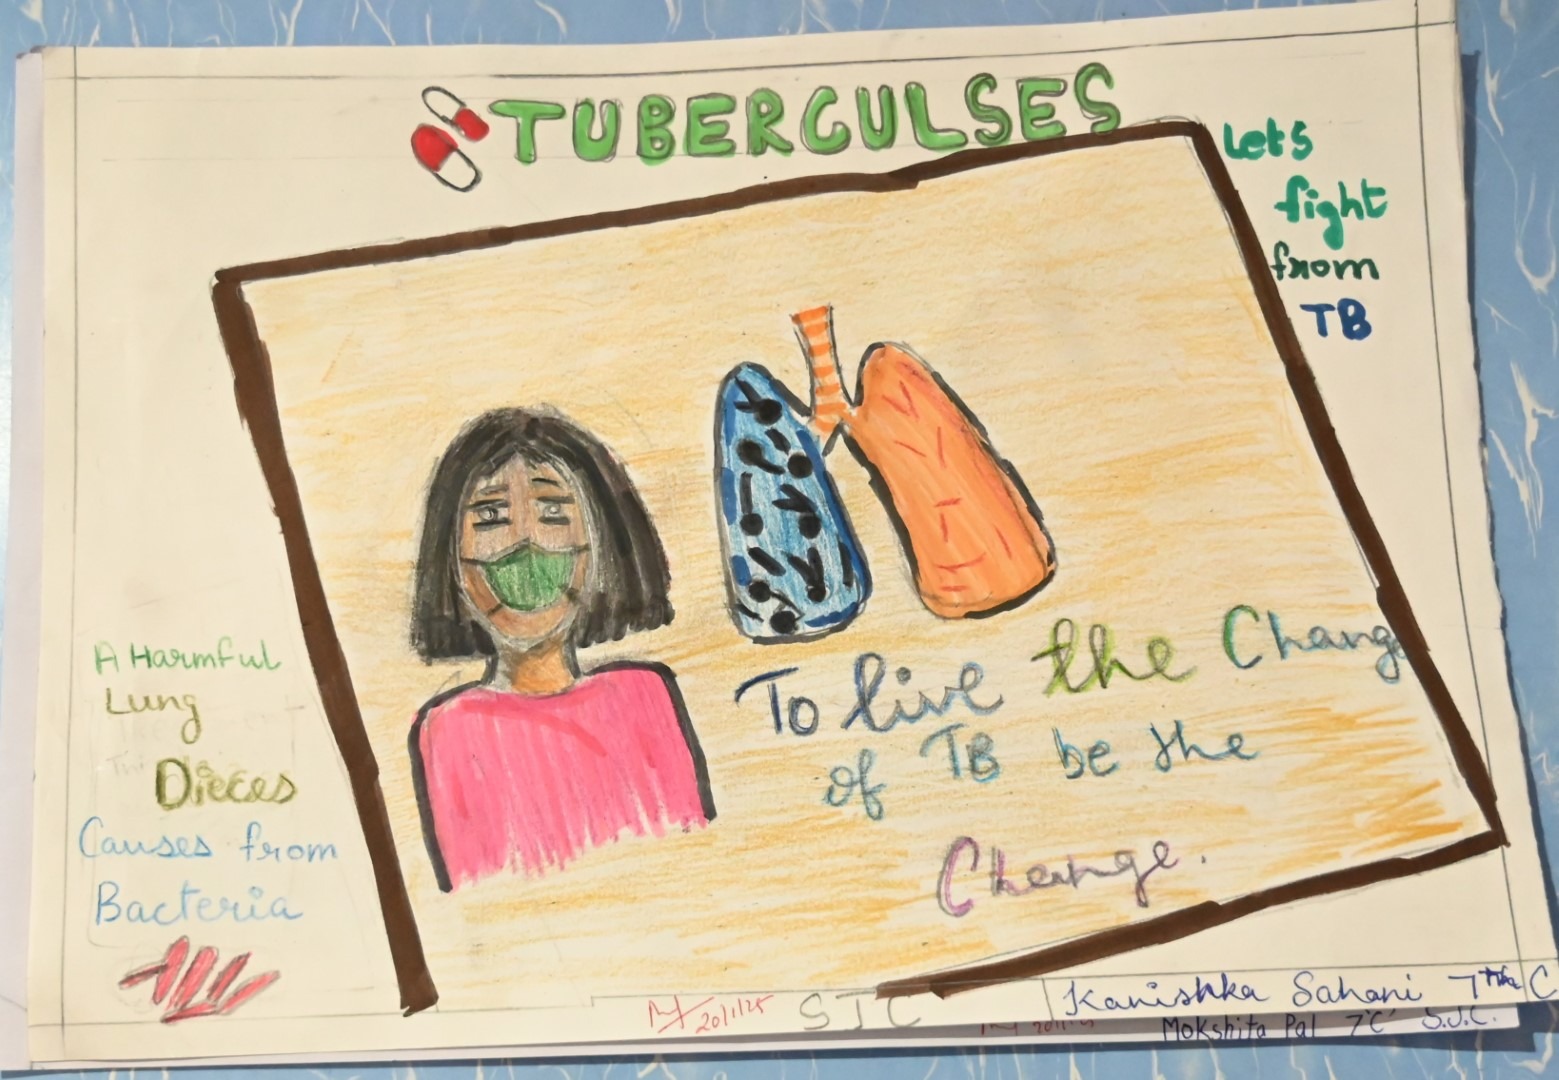 TUBERCULSES
Lets
fight
from
TB
A Harmful
Lung
Dieces
Causes from
Bacteria
To live the Change
of TB be the
Change.
20/1/25
SJC
Kanishka Sahani 7th C
Mokshita Pal 7'C' S.J.C.